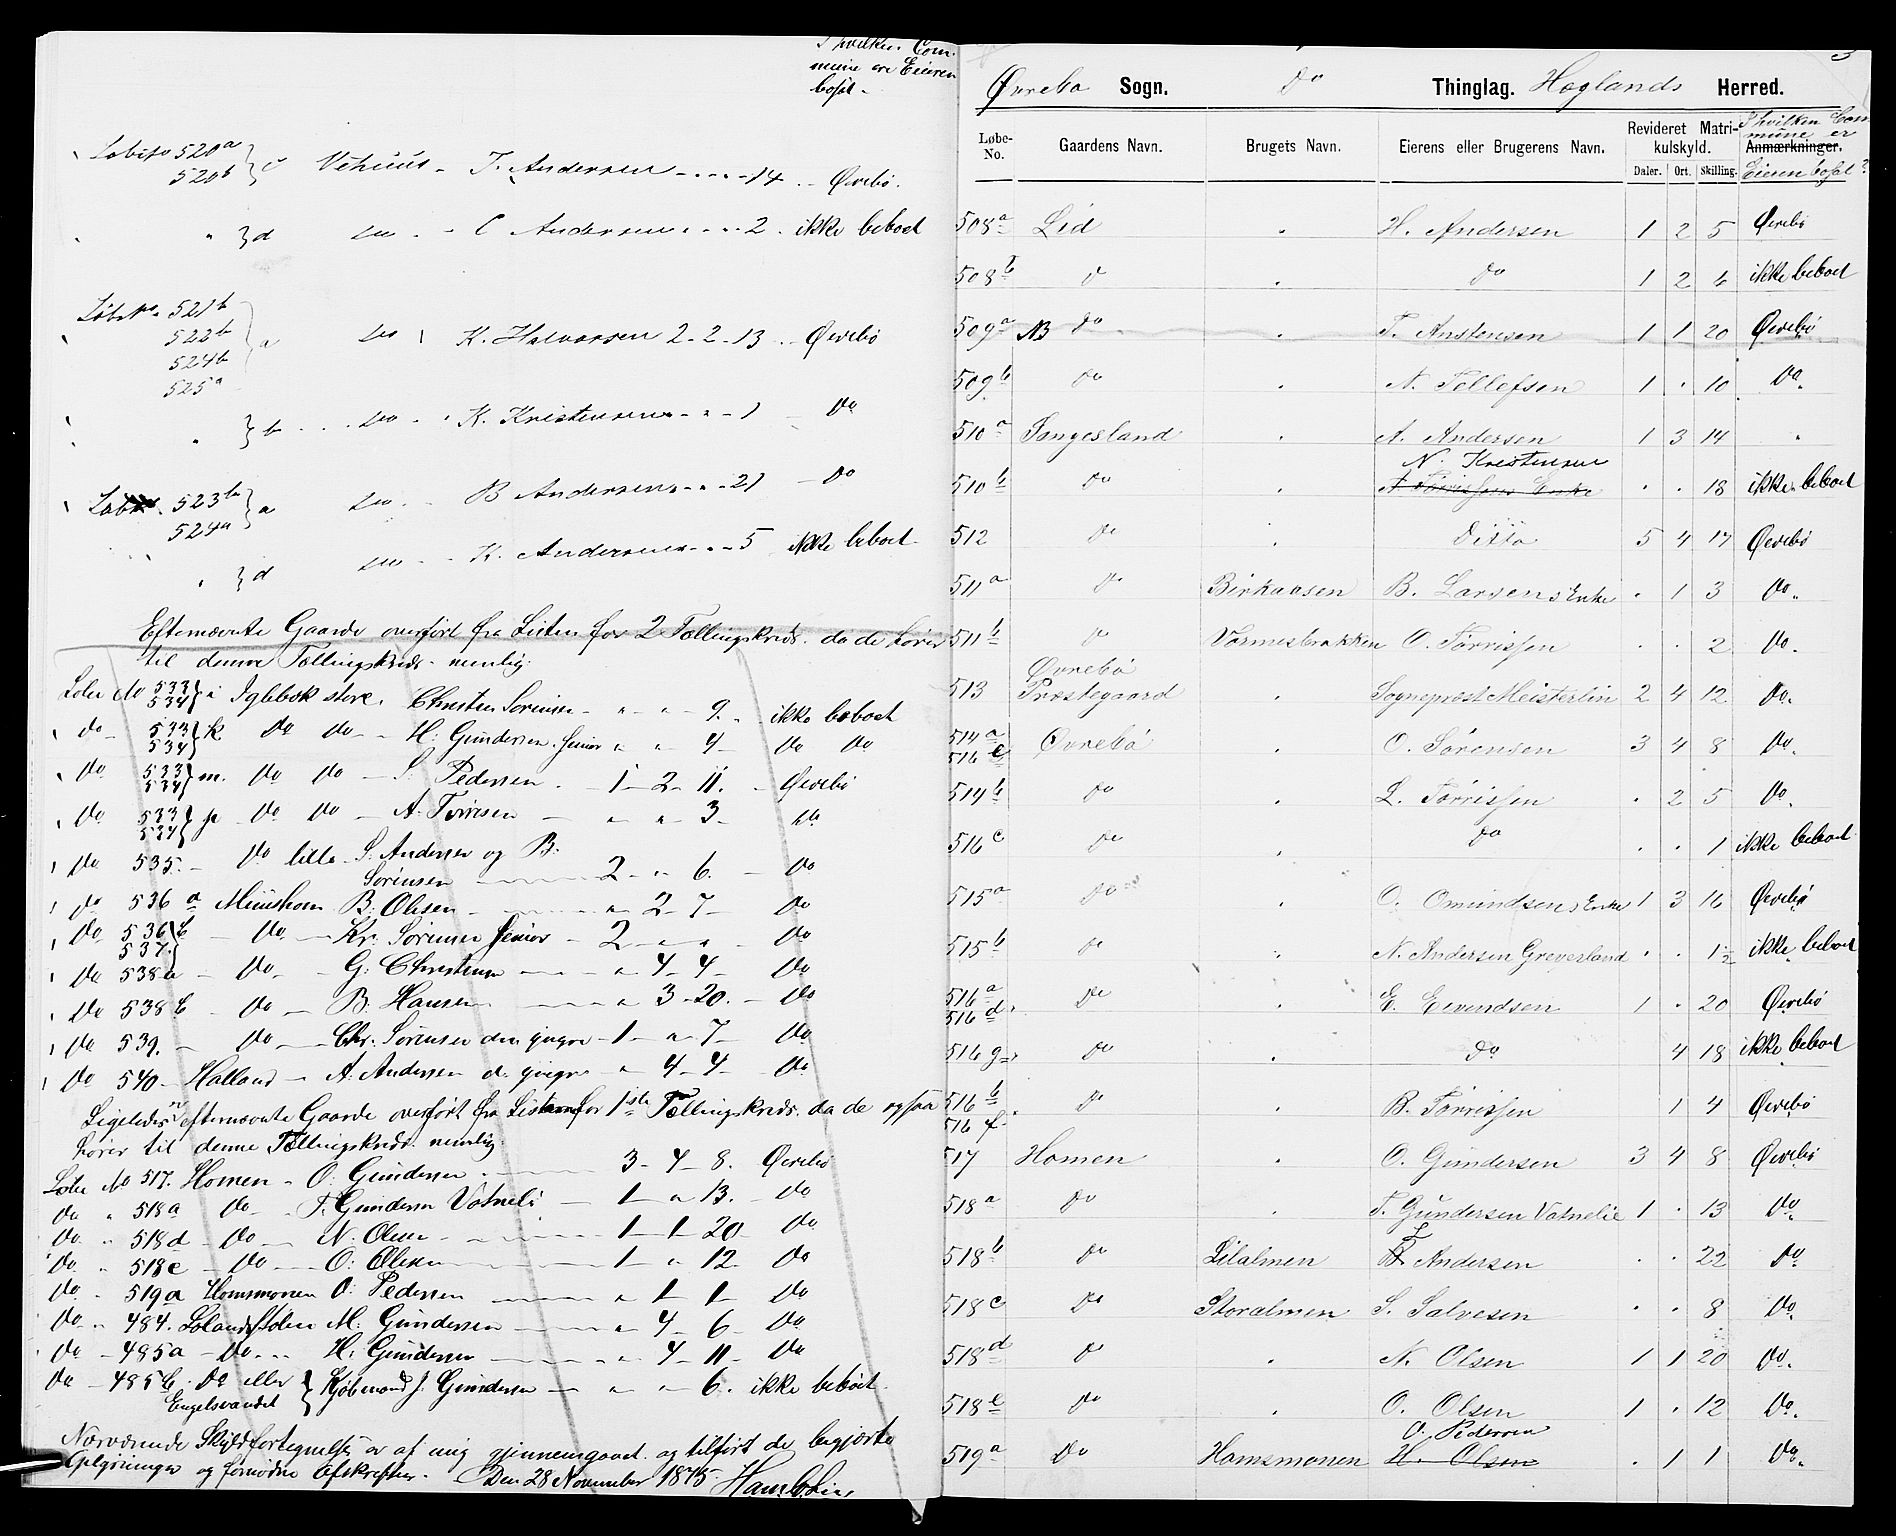 I hvilken Com-
mune er Eieren
bosat.
Løbe No 520a
520b } c Vehuus - T. Andersen - - - - 14 - Øvrebø.
" } d do - - C Andersen - - - 2 - ikke beboet
Løbe No 521b
522b
524b
525a } a do K. Halvorsen 2 - 2 - 13 - Øvrebø
" } b - - do - K. Kristensen - - - 1 - do
523b
524a } a do - B Andersen - - - 21 - do
" } d do - - K. Andersen - - - 5 ikke beboet
Efternævnte Gaarde overført fra Listen for 2 Tællingskreds. da de hører
til denne Tællingskreds. nemlig:
Løbe No 533
534 } i Iglebæk store. Christen Sørensen - " - " - 9. - ikke beboet
do - 533
534 } k do do - H. Gundersen. senior " " 4 - do do
do 533
534 } m. do do - S. Pedersen. - 1 - 2 - 11. - Øvrebø
do 533
534 } p do do - A. Tørresen - " " 3 - do
do 535. - do lille - S. Andersen og B.
Sørensen - 2 - " 6. - do
do 536 a B. Olsen - " - 2 - 7 - do
do 536 b
537. } - do. - Kr. Sørensen senior - 2 - " " - do
do 538a - do. - G. Christensen - " - 4 - 4 - do
do 538 b - do - B. Hansen - " 3 - 20. - do
do 539. - do - Chr. Sørensen den yngre - 1 - " 7 - do
do 540 - Halland - A. Andersen d. yngre - " 4 - 4 - do
Ligeledes er efternævnte Gaarde overført fra Listen for 1ste Tællingskreds. da de ogsaa
hører til denne Tællingskreds. nemlig:
Løbe No 517. Homen - O. Gundersen. - 3 - 4 - 8. Øvrebø
do " 518a do - T. Gundersen Vatneli - 1 - " 13. - do
do " 518d - do - N. Olsen - 1 - 1 - 20 - do
do " 518e - do - O. Olsen - 1 - " 12. do
do - 519a Homsmonen O. Pedersen - " - 1 - 1 - do
do " 484. M. Gundersen - " 4 - 6 - do
do - 485a - do - - - H. Gundersen - " 4 - 11 - do
do - 485b. do eller
Engelsvandet } Kjøbmand J. Gundersen - " - " - 6. ikke beboet.
Nærværende Skyldfortegnelse er af mig gjennemgaaet og tilført de begjærte
Oplysninger og fornødne Afskrifter. Den 28 November 1875.
3
Øvrebø Sogn. do Thinglag. Høglands Herred.
Løbe-No. Gaardens Navn. Brugets Navn. Eierens eller Brugerens Navn. Revideret Matri-kulskyld. Daler. Ort. Skilling. Anmærkninger. I hvilken Com-mune er Eieren bosat?
508a Lid " H. Andersen 1 2 5 Øvrebø
508b do " do 1 2 6 ikke beboet
509a NB do " T. Anstensen 1 1 20 Øvrebø
509b do " N. Tellefsen 1 " 10 do.
510a Tangesland " A. Andersen 1 3 14 "
N. Kristensen
510b do " A Tørrissens Enke " " 18 ikke beboet
512 do " Ditto 5 4 17 Øvrebø
511a do Birkaasen B. Larsens Enke " 1 3 do.
511b do Vormesbrakken O. Tørrissen " " 2 do.
513 Øvrebø Præstegaard " Sogneprest Meisterlin 2 4 12 do.
514a
516e Øvrebø " O. Sørensen 3 4 8 do.
514b do " L. Tørrissen " 2 5 do.
516c do " do " " 1 ikke beboet
515a do " O. Omundsens Enke 1 3 16 Øvrebø
515b do " N. Andersen Greverland " " 1 1/2 ikke beboet
516a
516d do " E. Eivendsen 1 " 20 Øvrebø
516g do " do 4 18 ikke beboet
516b
516f do " B. Tørrissen 1 4 Øvrebø
517 Homen " O. Gundersen 3 4 8 Øvrebø
518a do " T. Gundersen Vatnelie 1 " 13 do.
518b do Lilalmen T. Andersen " " 22 do
518c do Storalmen S. Salvesen " " 8 do.
518d do " N. Olsen 1 1 20 do.
518e do " O. Olsen 1 " 12 do.
O. Pedersen
519a do Homsmonen H. Olsen " 1 1 do.